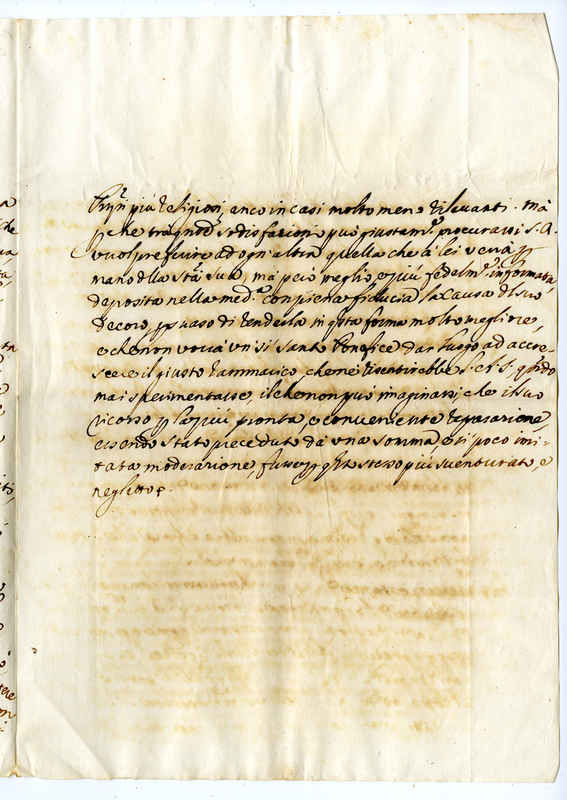 più religiosi, anco in casi molto meno rilevanti. mà
perche trà quod.e sodisfazioni può giustam.te procurarsi S. A.
vuol preferire ad ogn'altra quella che à lei verrà p
mano della Stà Sua, mà però meglio, e più fedelm.te informata,
deposita nella med.a con piena fiducia la Causa del suo
decoro, psuaso di renderla in qsta forma molto migliore,
e che non vorrà un sì Santo Pontefice dar luogo ad accre-
scere il giusto rammarico, che ne risentirebbe S. A. S. qdo
mai sperimentasse, il che non può imaginarsi, che il suo
ricorso p la più pronta, e conveniente reparazione,
essendo stato preceduto da una somma, e sì poco imi-
tata moderazione, fusse p qsto stesso più sventurato, e
negletto